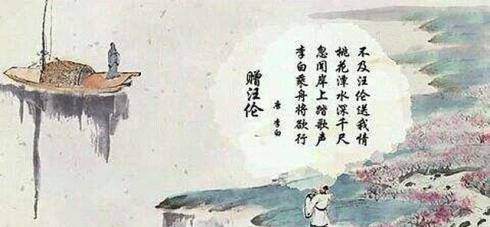 赠汪伦
唐 李白
李白乘舟将欲行
忽闻岸上踏歌声
桃花潭水深千尺
不及汪伦送我情